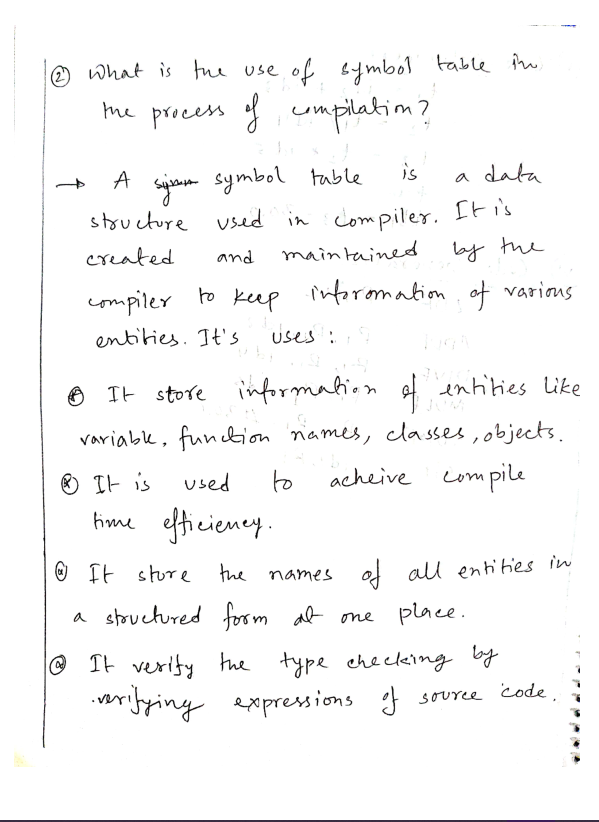 ② What is the use of symbol table in
the process of compilation?
→ A symbol table is a data
structure used in compiler. It is
created and maintained by the
compiler to keep information of various
entities. It's uses :
It store information of entities like
variable, function names, classes, objects.
It is used to acheive compile
time efficiency.
It store the names of all entities in
a structured form at one place.
It verify the type checking by
verifying expressions of source code.